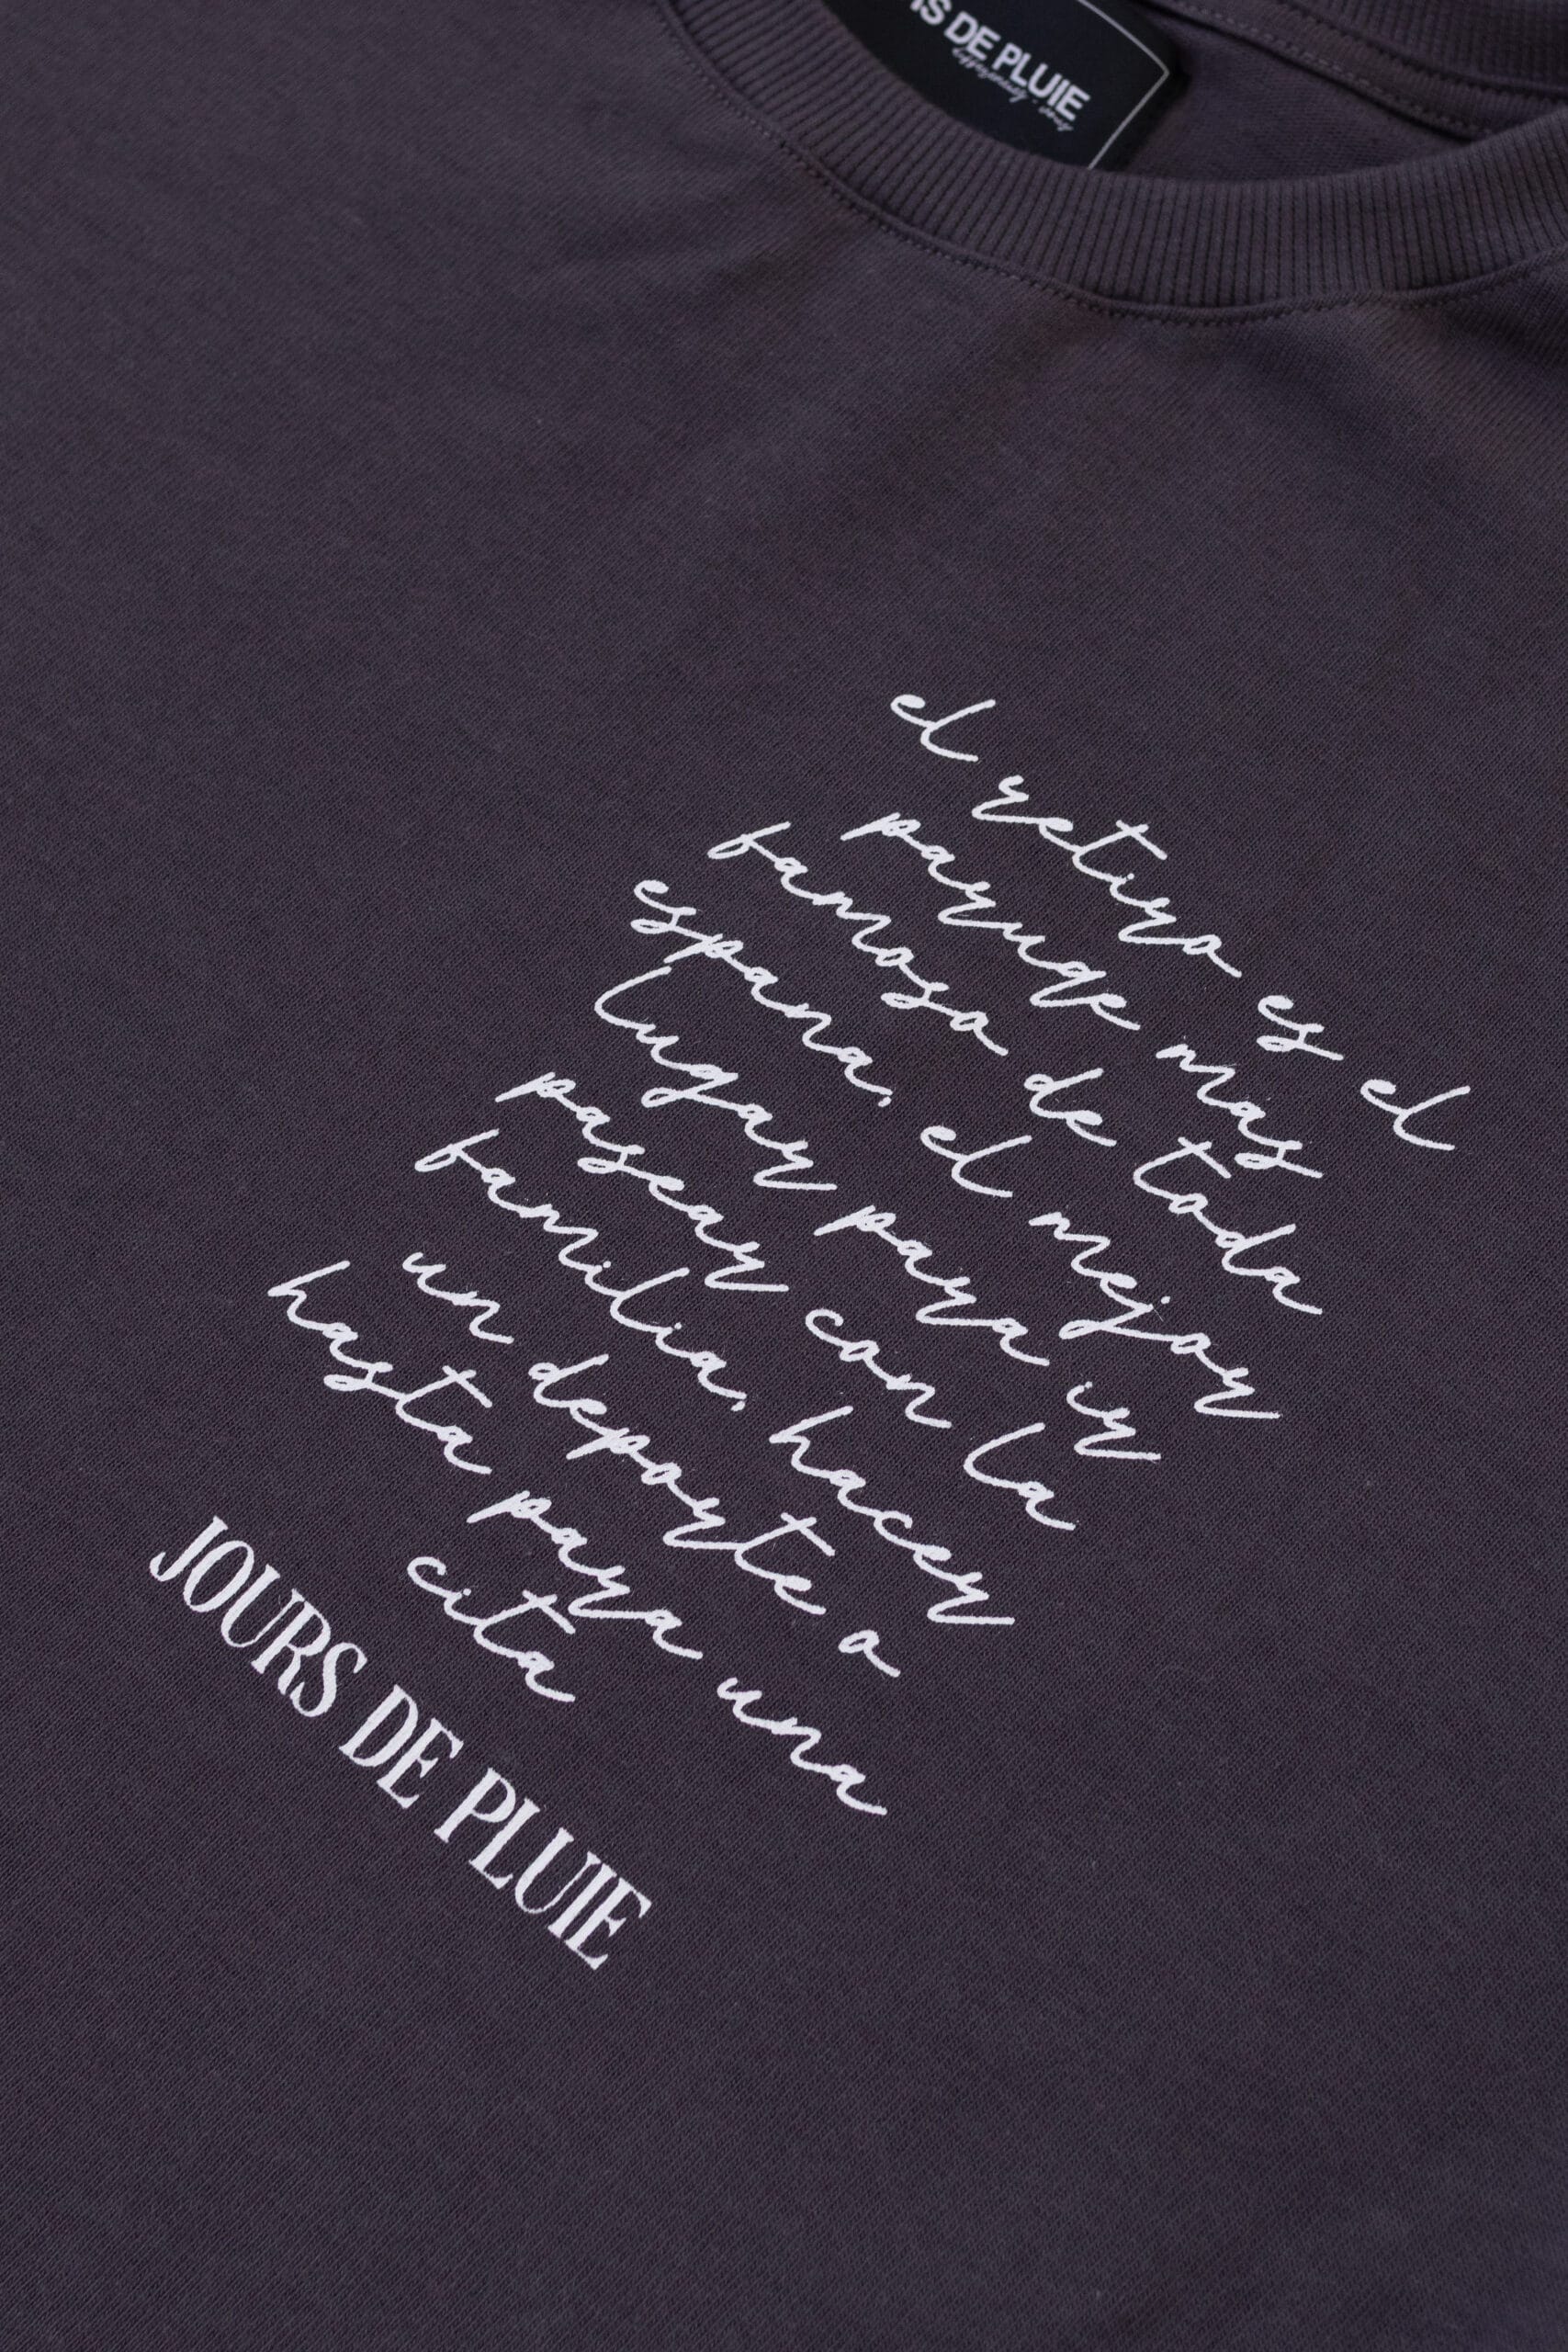 DE PLUIE
el retiro es el
paruqe mas
famoso de toda
espana, el mejor
lugar para ir
pasear con la
familia, hacer
un deporte o
hasta para una
cita
JOURS DE PLUIE